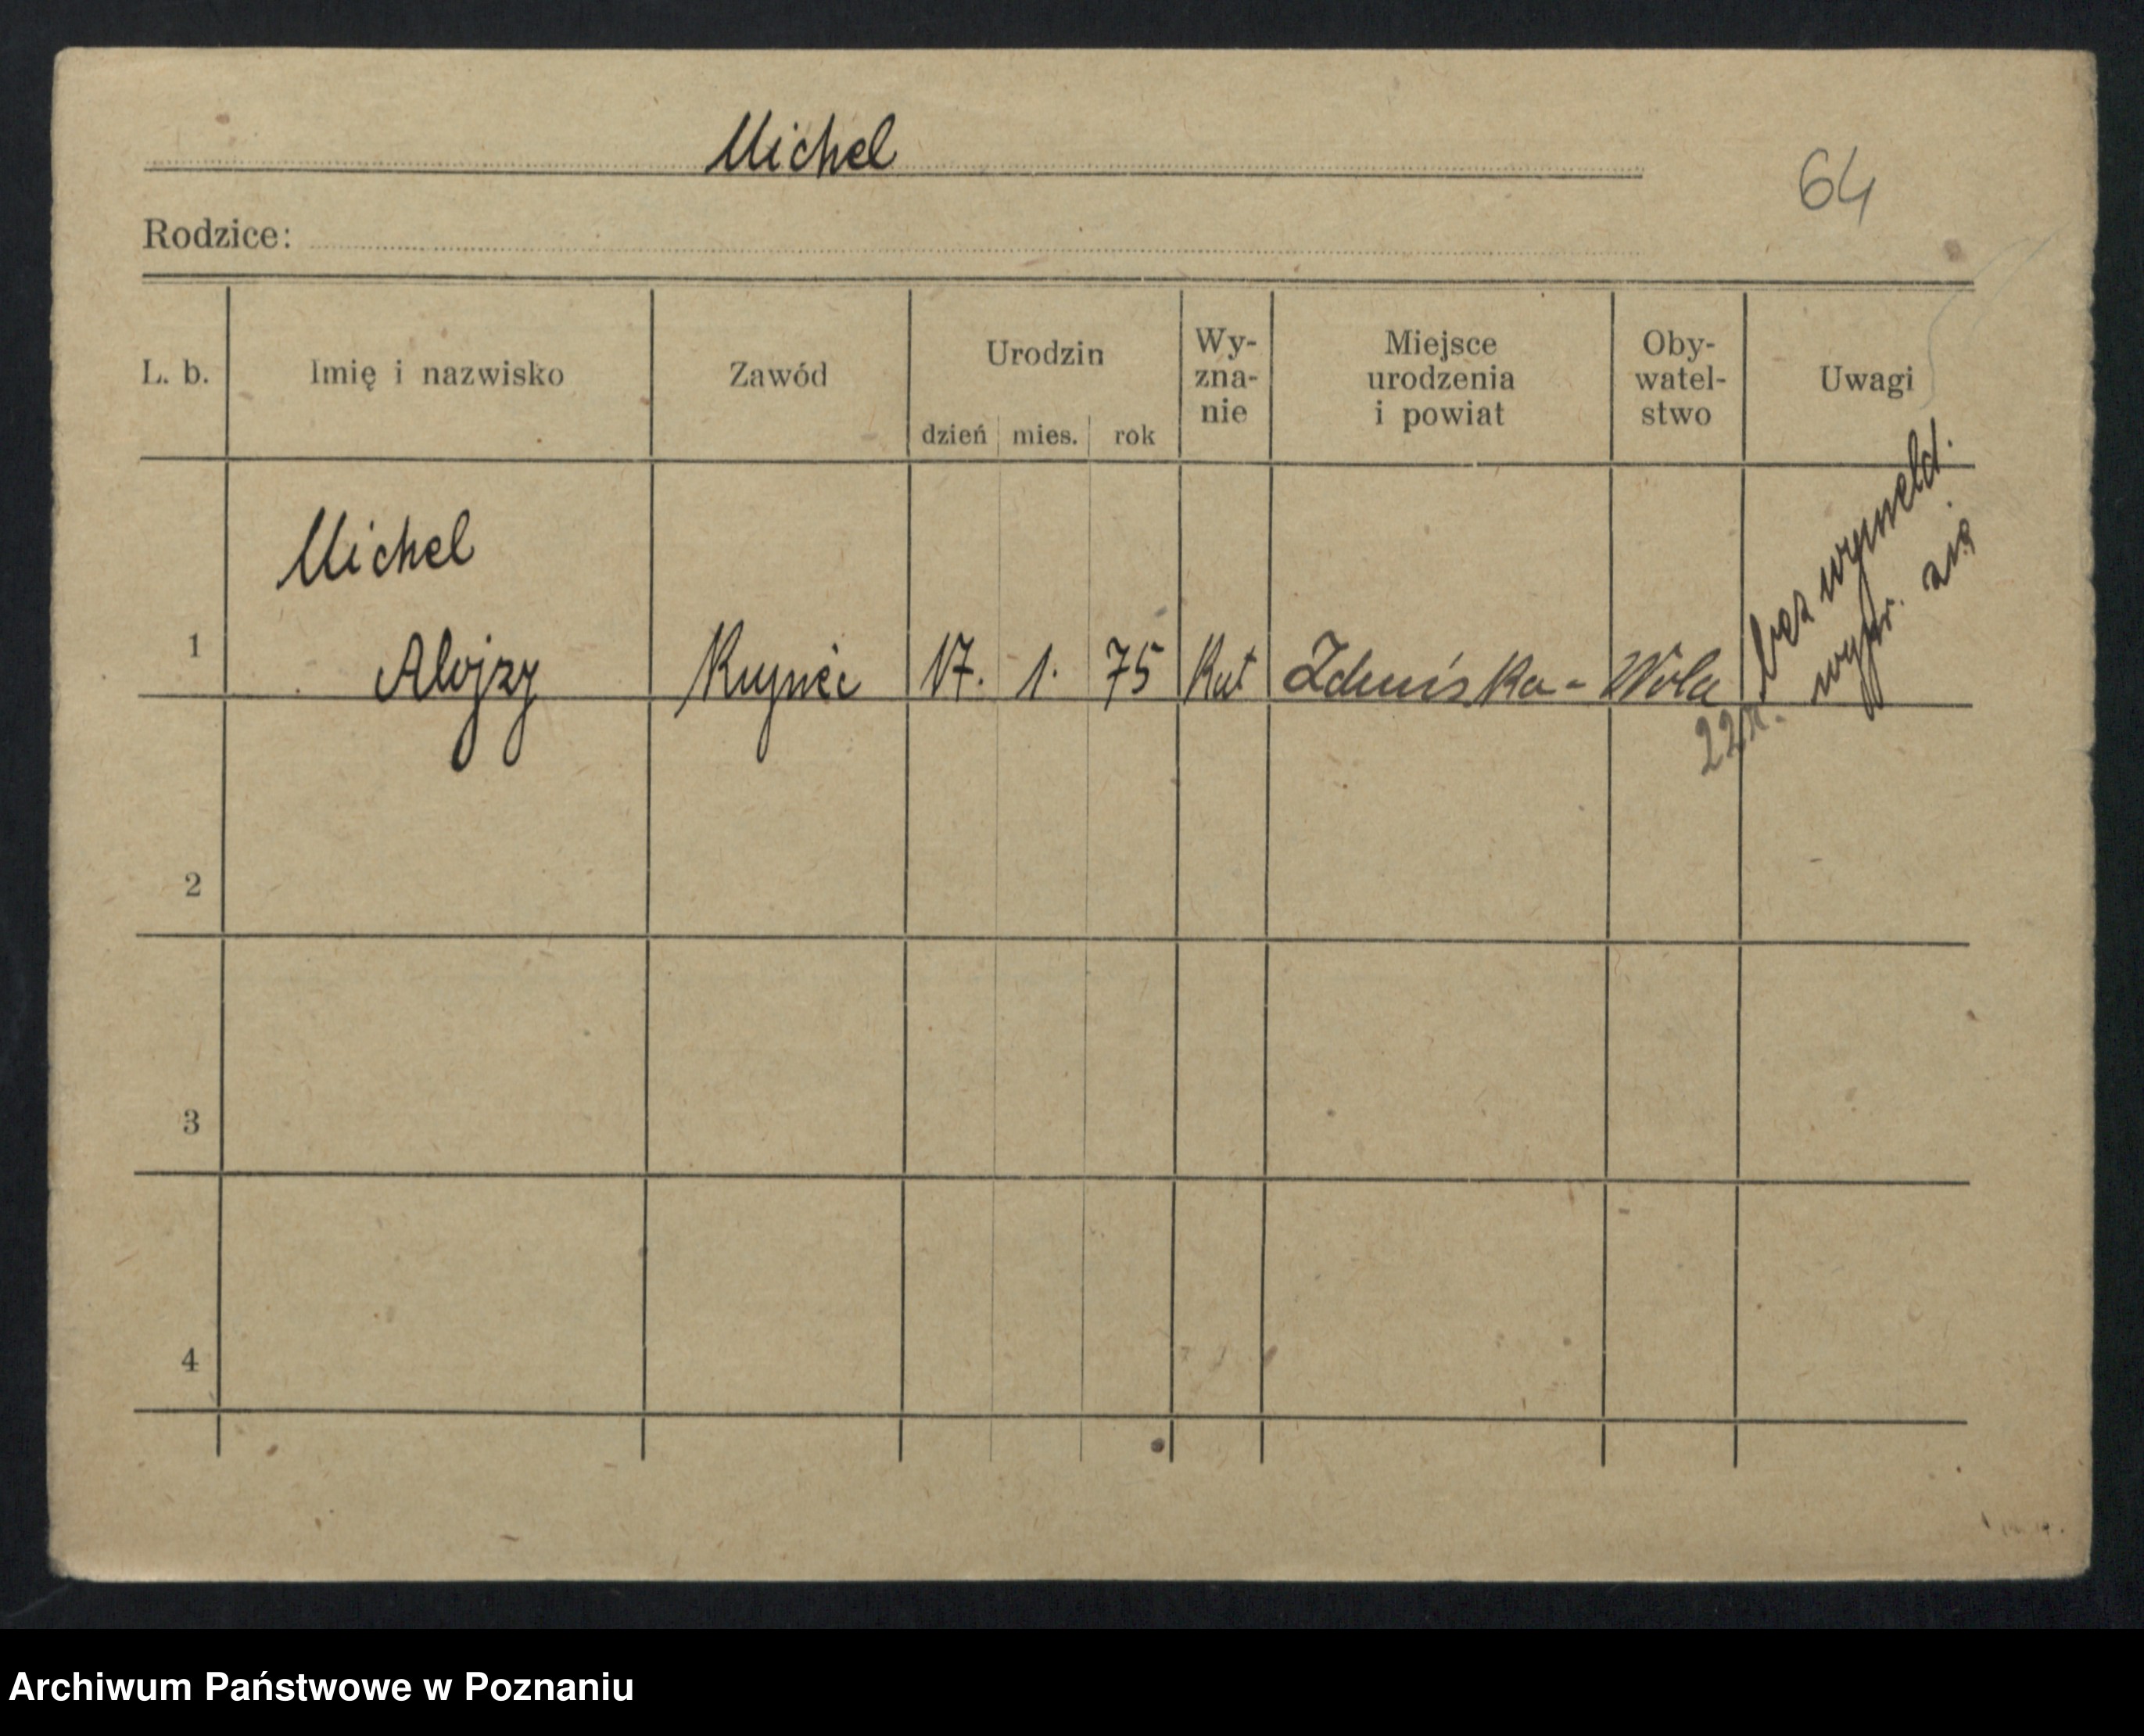 Michel
64
Rodzice:
L. b. Imię i nazwisko Zawód Urodzin dzień mies. rok Wy-zna-nie Miejsce urodzenia i powiat Oby-watel-stwo Uwagi
Michel
1 Alojzy Kupiec 17. 1. 75 Kat Zduńska-Wola
bez wymeld.
wypr. się
2
3
4
Archiwum Państwowe w Poznaniu